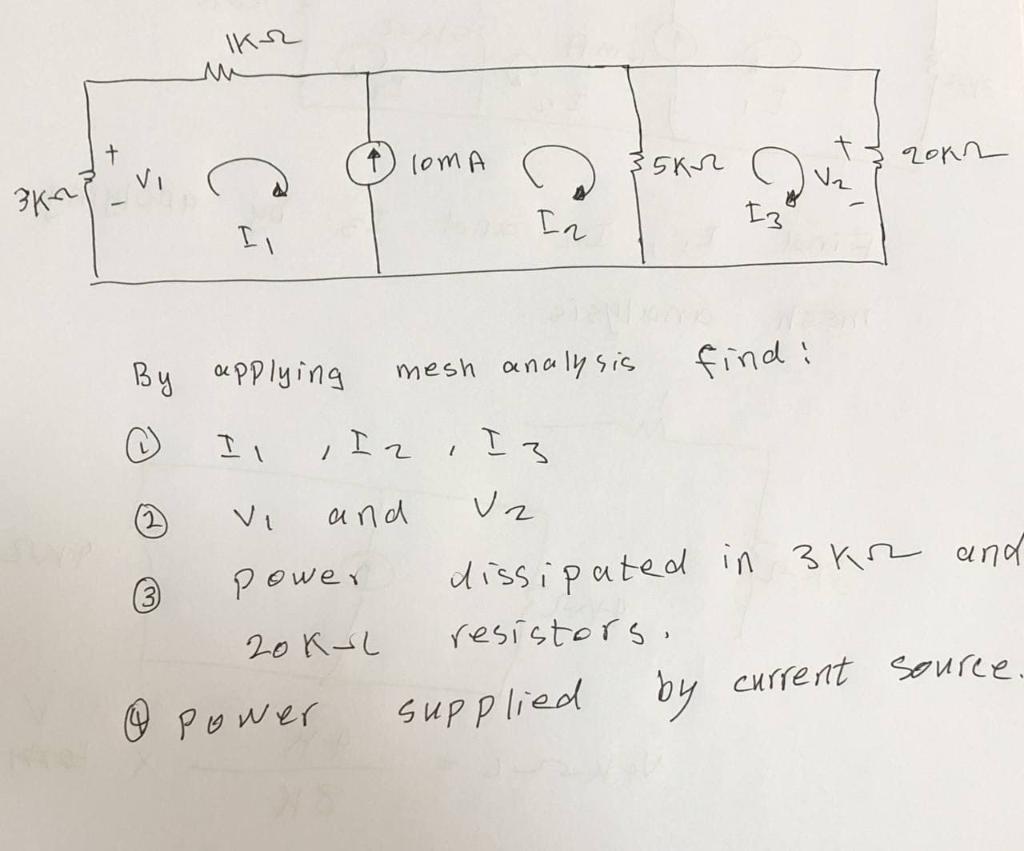 1KΩ
+
V1
-
3KΩ
I1
10mA
I2
5KΩ
I3
+
V2
-
20KΩ
By applying mesh analysis find:
① I1 , I2 , I3
② V1 and V2
③ power dissipated in 3KΩ and
20KΩ resistors.
④ power supplied by current source.